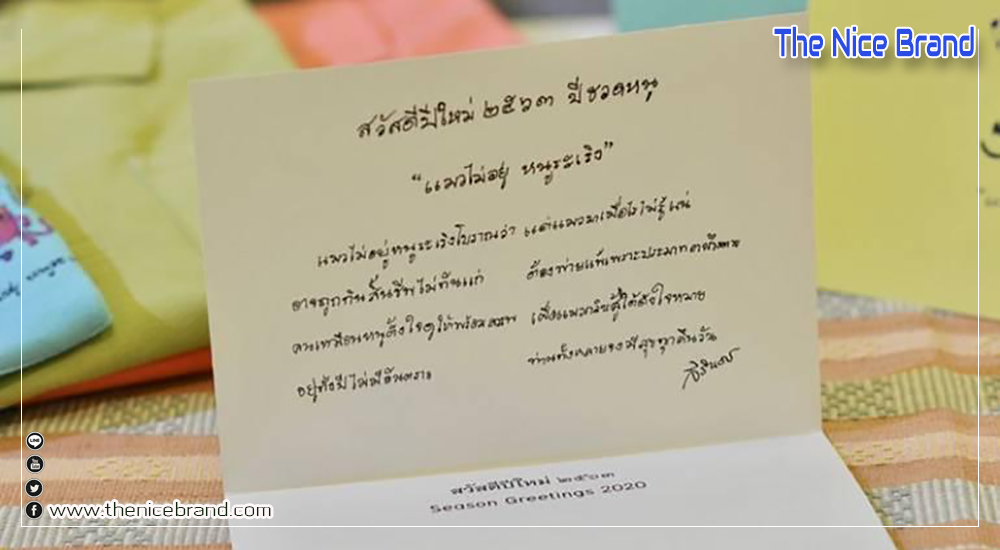 The Nice Brand
สวัสดีปีใหม่ ๒๕๖๓ ปีชวดหนู
“แมวไม่อยู่ หนูระเริง”
แมวไม่อยู่หนูระเริงโบราณว่า แต่แมวมาเมื่อไรไม่รู้แน่
อาจถูกกินสิ้นชีพไม่ทันแก่ ต้องพ่ายแพ้เพราะประมาท
คนเหมือนหนูตั้งใจ ให้พร้อม เมื่อแมว สู้ได้ดังใจหมาย
อยู่ทั้งปีไม่มีอันตราย ท่านทั้งหลายจงมีสุขทุกคืนวัน
สิรินธร
สวัสดีปีใหม่ ๒๕๖๓
Season Greetings 2020
LINE
You Tube
www.thenicebrand.com